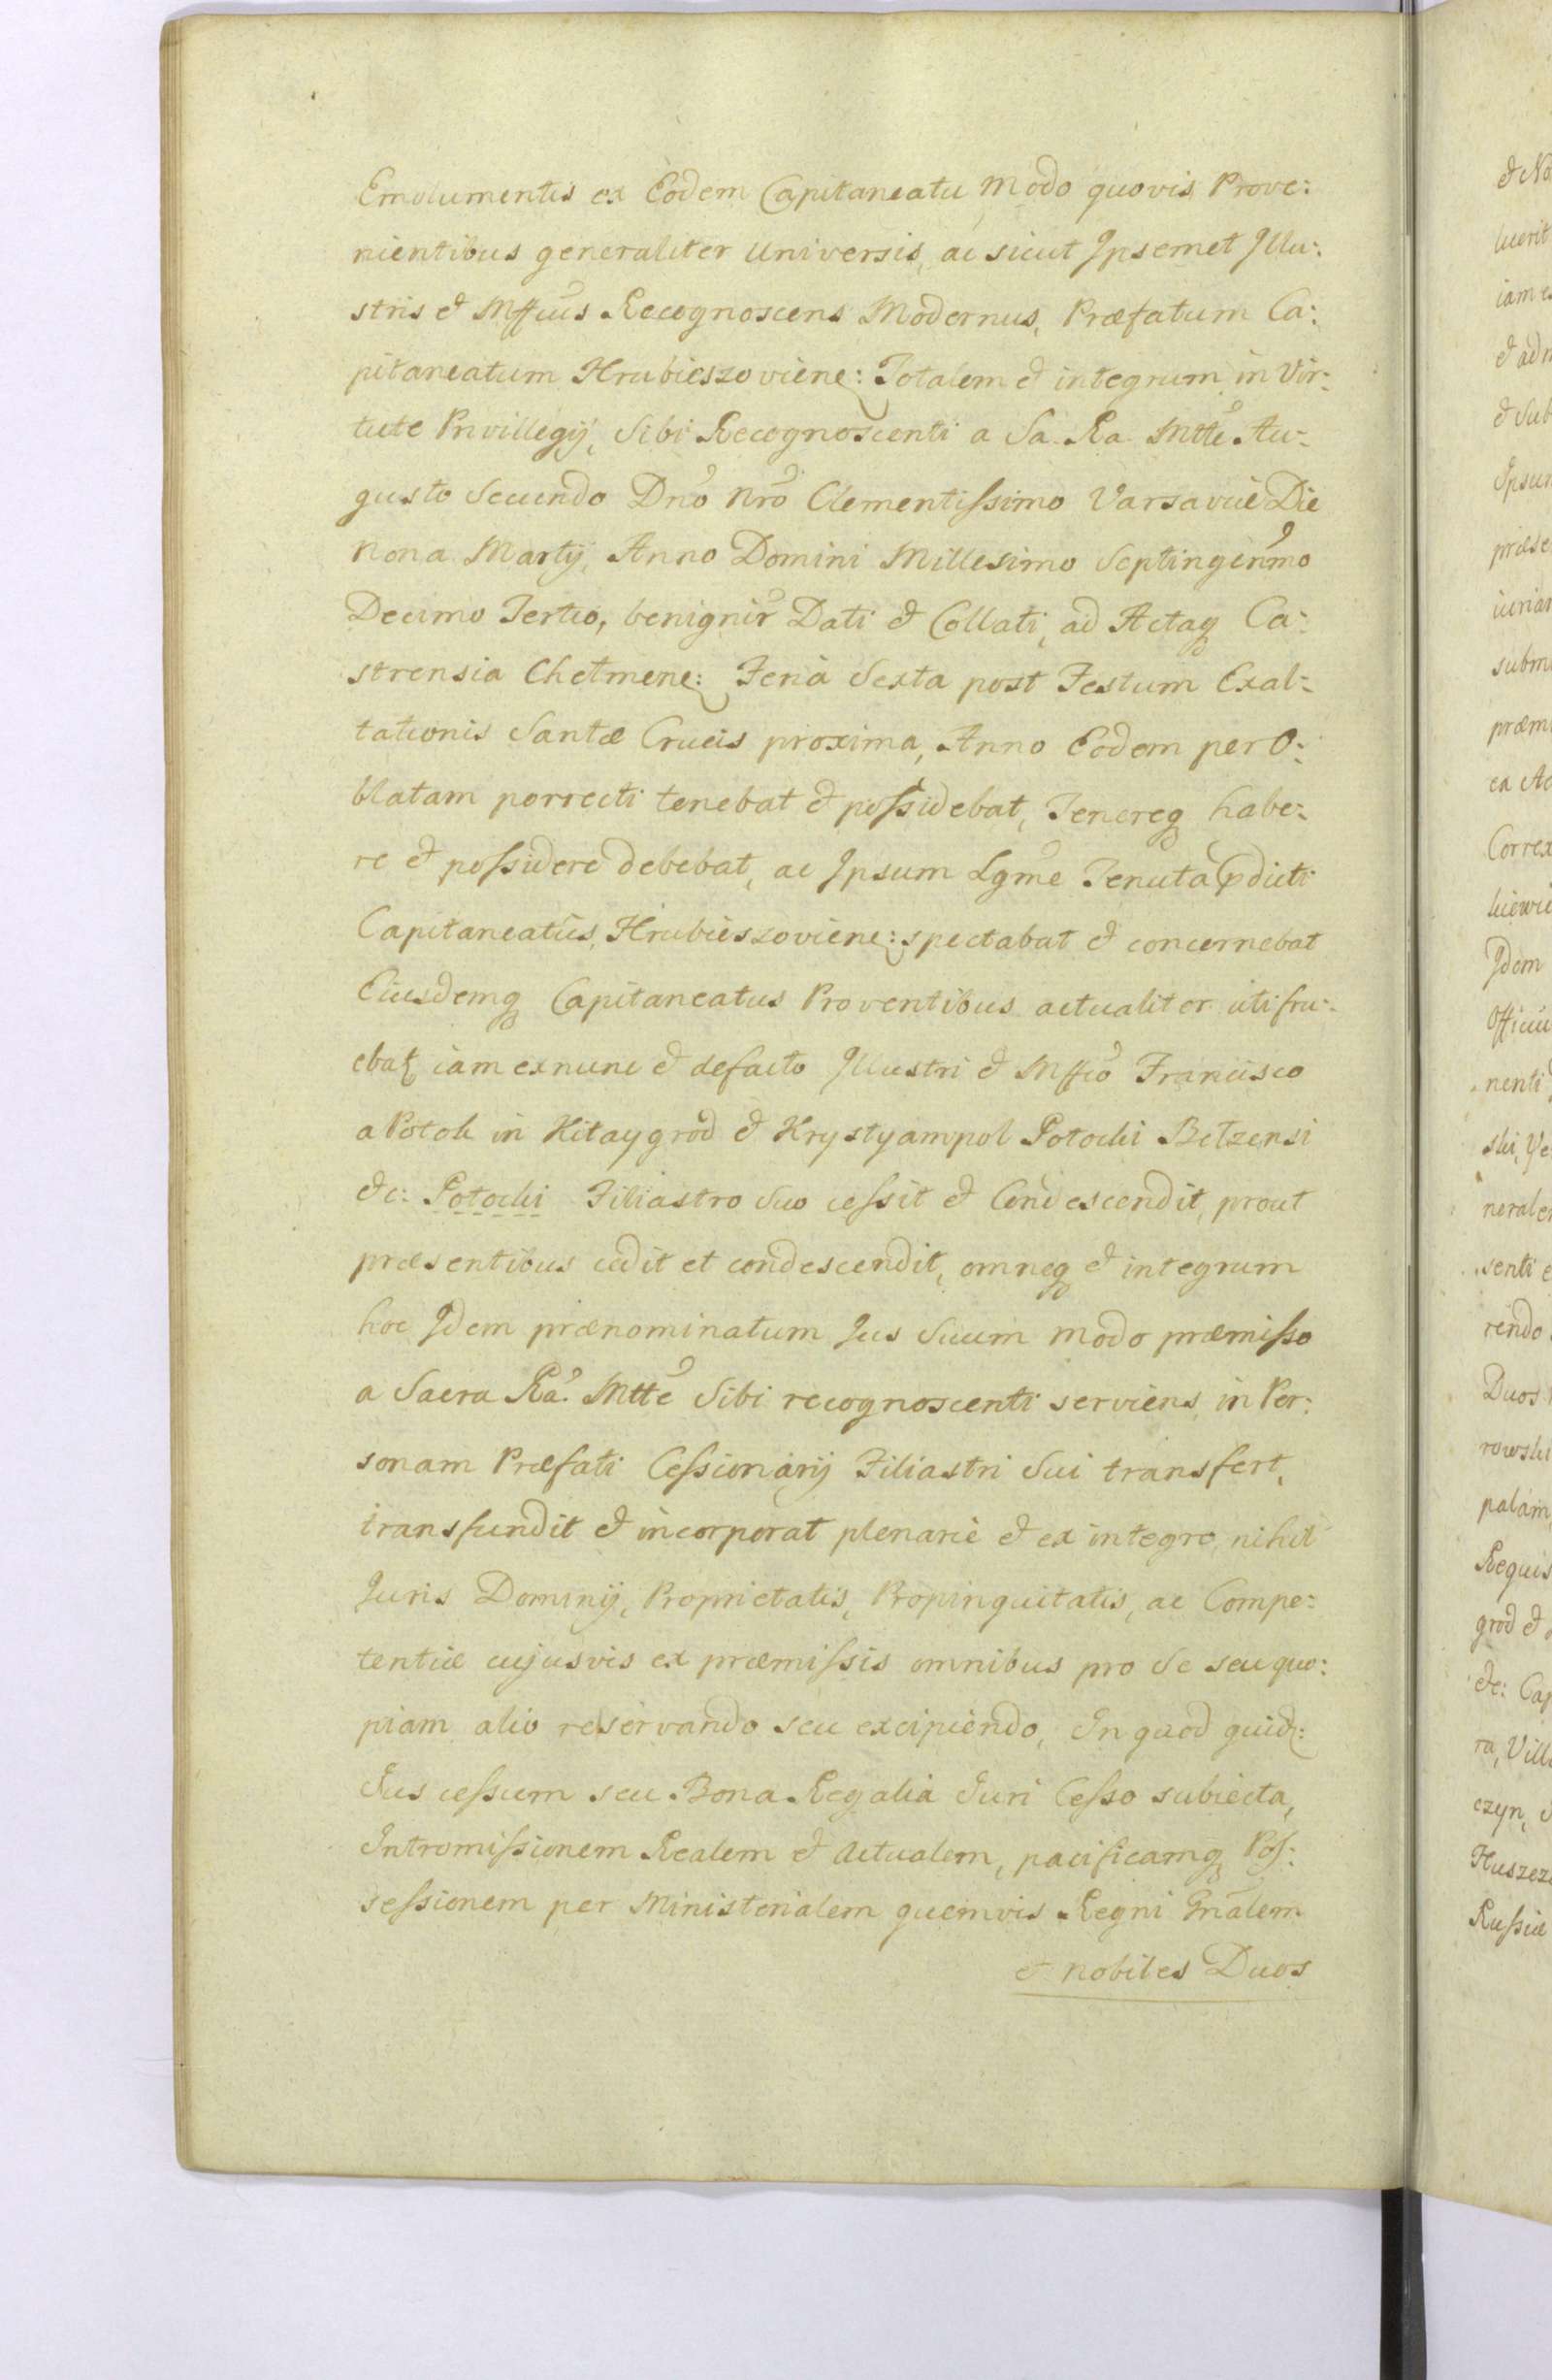 Emolumentis ex Eodem Capitaneatu modo quovis Prove:
nientibus generaliter Universis, ac sicut Ipsemet Illu:
stris & Mffcus Recognoscens Modernus, Præfatum Ca:
pitaneatum Hrubieszoviene: Totalem & integrum in Vir:
tute Privillegij, Sibi Recognoscenti a Sa. Ra. Mtte Au:
gusto Secundo Dno Nro Clementissimo Varsaviæ Die
nona Martij, Anno Domini Millesimo Septingenmo
Decimo Tertio, benignir Dati & Collati, ad Actaq Ca:
strensia Chełmene: Feria Sexta post Festum Exal:
tationis Santæ Crucis proxima, Anno Eodem per O:
blatam porrecti tenebat & possidebat, Tenereq habe:
re & possidere debebat, ac Ipsum Lgme Tenuta pdicti
Capitaneatus, Hrubieszoviene: spectabat & concernebat
Eiusdemq Capitaneatus Proventibus actualiter uti fru:
ebat iam exnunc & defacto Illustri & Mffco Francisco
a Potok in Kitaygrod & Krystyampol Potocki Bełzensi
&c: Potocki Filiastro Suo cessit & Condescendit, prout
præsentibus cedit et condescendit, omneq & integrum
hoc Idem prænominatum Jus Suum modo præmisso
a Sacra Ra. Mtte Sibi recognoscenti serviens, in Per:
sonam Præfati Cessionarij Filiastri Sui transfert,
transfundit & incorporat plenarie & ex integro, nihil
Juris Dominij, Proprietatis, Propinquitatis, ac Compe:
tentiæ cujusvis ex præmissis omnibus pro Se seu quo:
piam alio reservando seu excipiendo, In quod quid:
Jus cessum seu Bona Regalia Juri Cesso subiecta,
Intromissionem Realem & Actualem, pacificamq Pos:
sessionem per Ministerialem quemvis Regni Gnalem
et nobiles Duos
& No
luerit
iam e
& adm
& Sub
Ipsum
præse
iurian
subm
præm
ex Ac
Correx
kiewic
Idem
Officiu
nenti
ski, Ve
neralem
senti e
rendo
Duos
rowski
palam
Requis
grod &
&c: Cap
ra, Villa
czyn,
Huszcz
Russiæ